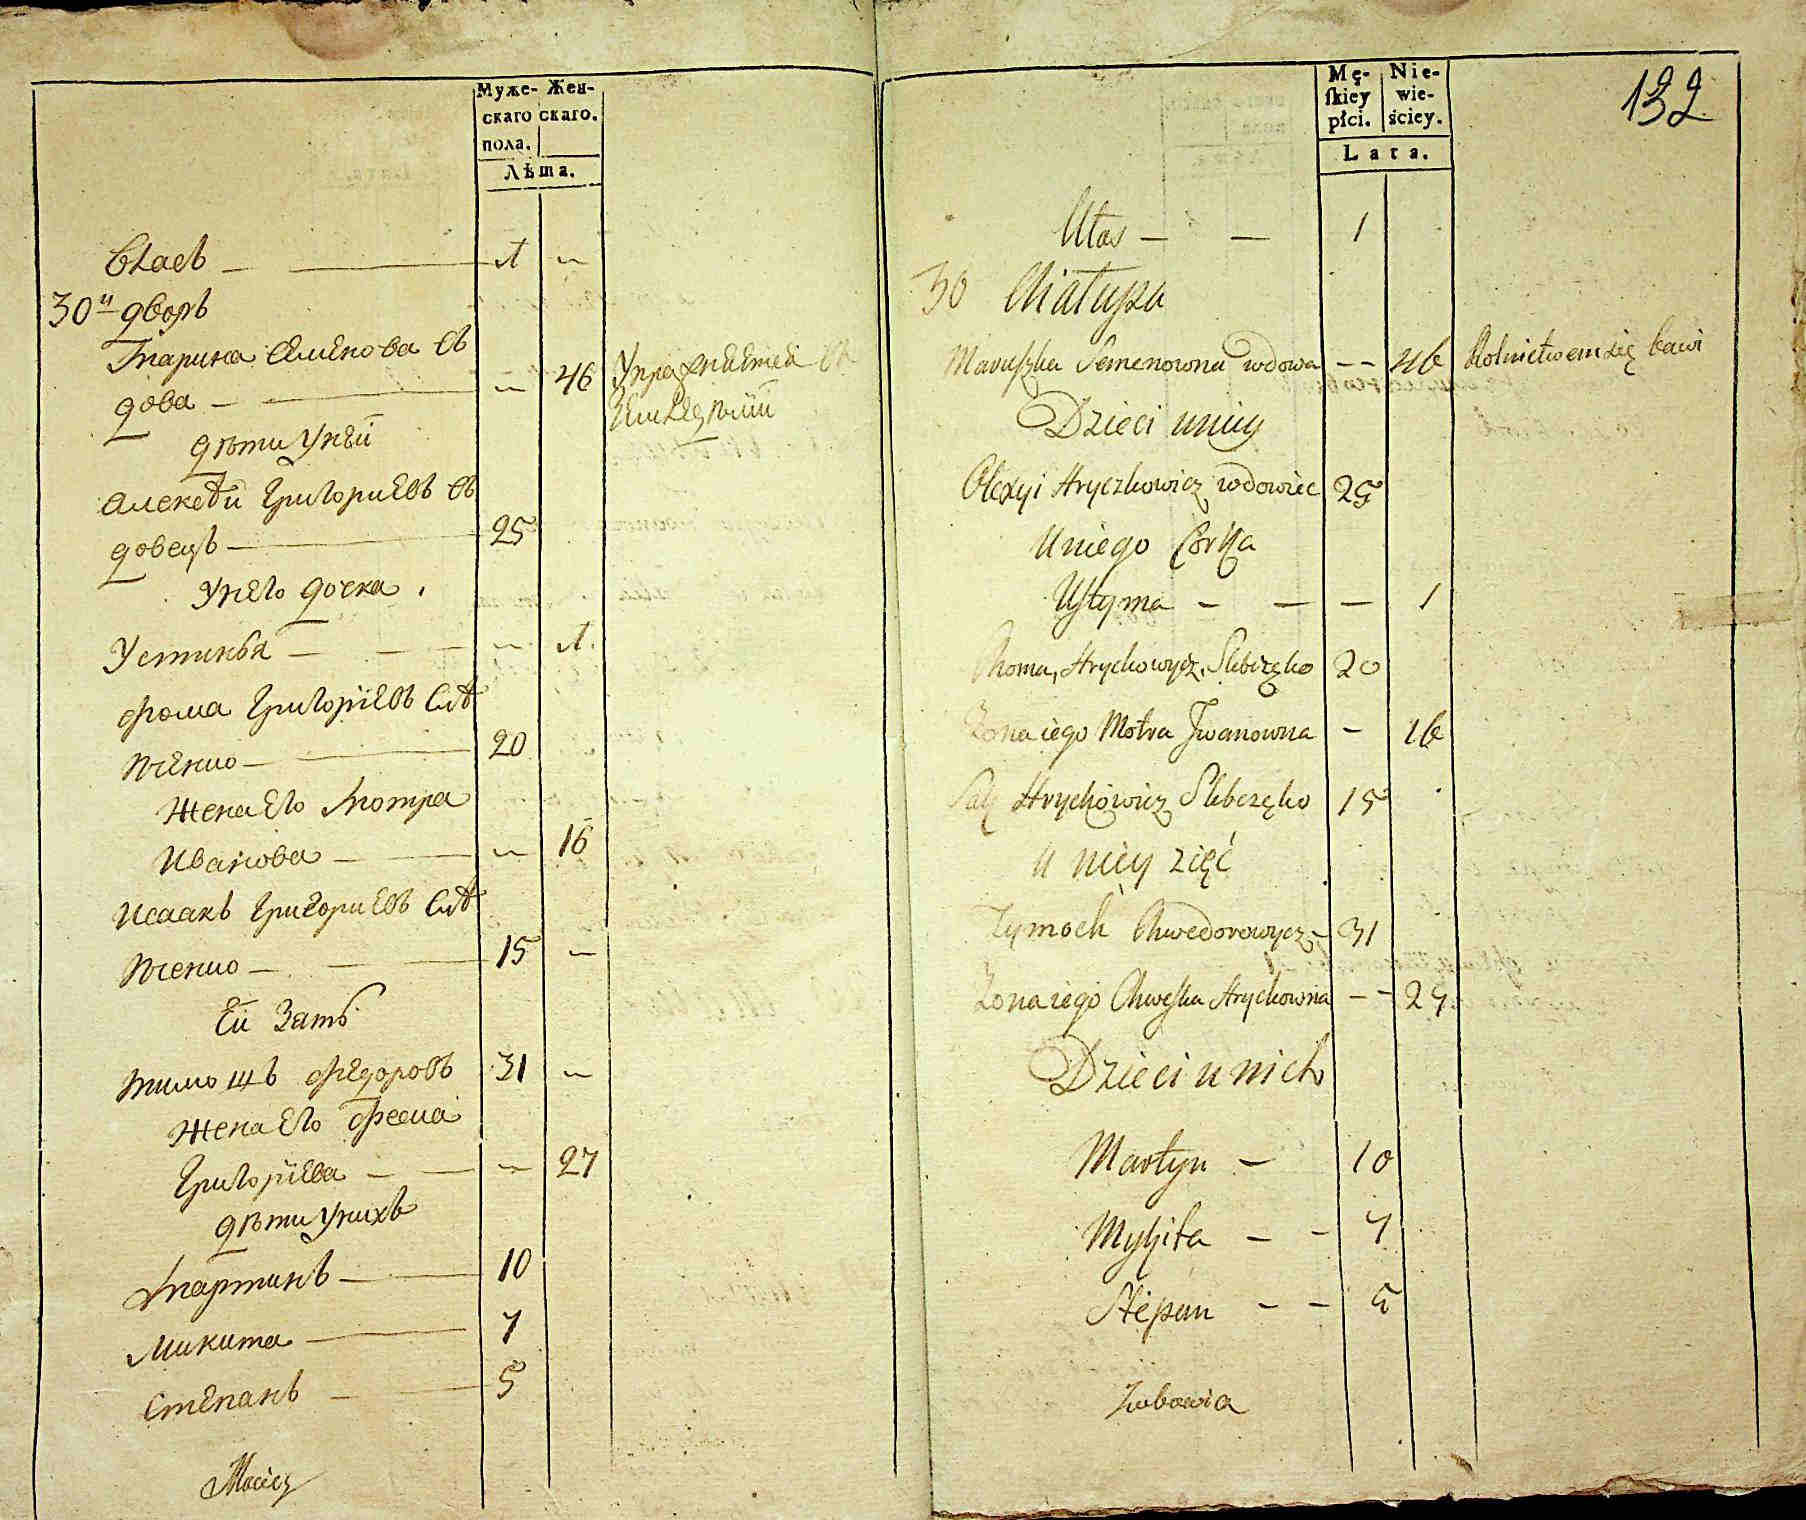 Муже- Жен-
скаго скаго.
пола.
Лѣта.
Власъ — — 1 —
30й дворъ
Марина Семенова въ
дова — — 46 Упражняется въ
земледѣлїи
дѣти унѣй
Алексѣй Григориевъ въ
довецъ — 25
Унего дочка
Устинья — — — 1
Фома Григорїевъ
— 20
Жена его Мотра
Иванова — — 16
Исаакъ Григориевъ
— — 15 —
Ей Зять
Тимошъ Федоровъ 31 —
Жена его
Григорїева — — 27
дѣти унихъ
Мартинъ — 10
Микита — 7
Степанъ — 5
Maciey
Mę- Nie-
ſkiey wie-
płci. ściey.
Lata.
132
Ułas — — 1
30 Chałupa
Maruszka Semenowna wdowa — — 46 Rolnictwem się bawi
Dzieci uniey
Olexyi Hryczkowicz wdowiec 25
Uniego Corka
Ustyma — — — 1
Choma Hryckowycz 20
Zona iego Motra Jwanowna — 16
Hryckowicz 15
U niey zięć
Tymoch Chwedorowycz — 31
Zona iego Chweska Hryckowna — — 27
Dzieci u nich
Martyn — 10
Mykita — — 7
Stepan — — 5